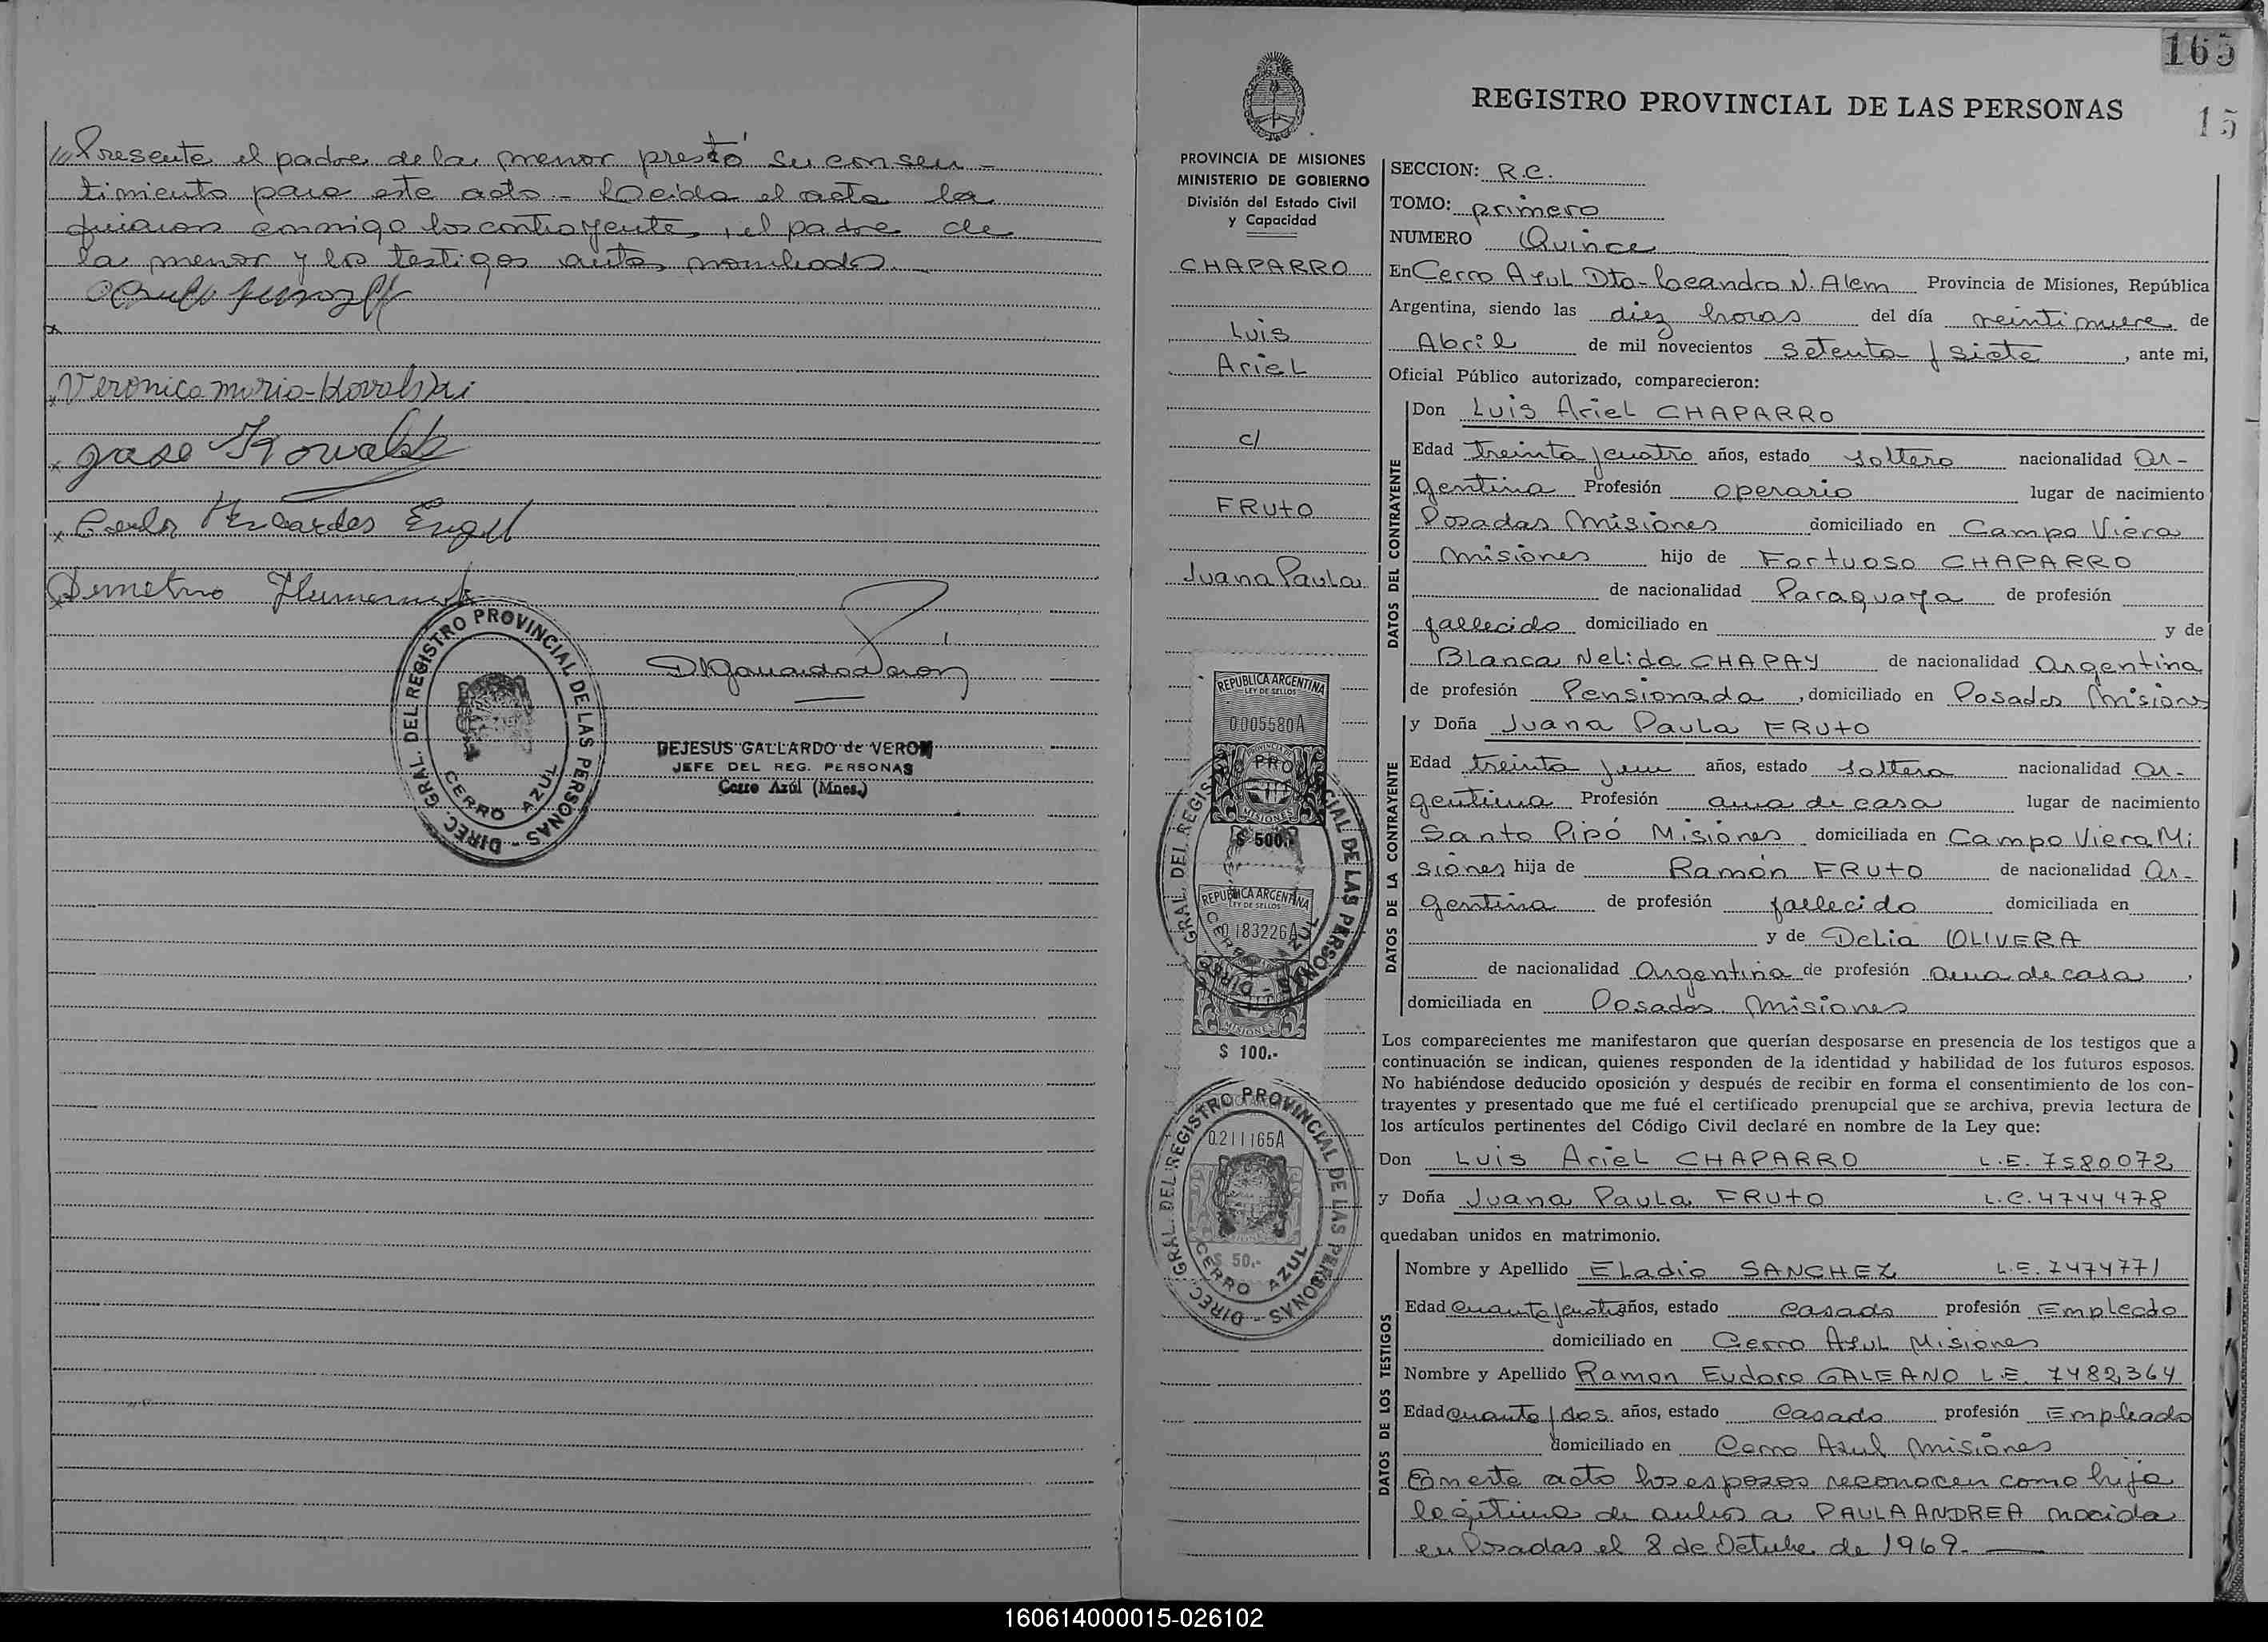 Presente el padre de la menor prestó su consen-
timiento para este acto - Leida el acta la
firmaron conmigo los contrayentes, el padre de
la menor y los testigos antes nombrados.
Veronica miria-Kovalski
jose Kowalski
Carlos Engel
Demetrio
DIREC. GRAL. DEL REGISTRO PROVINCIAL DE LAS PERSONAS -
CERRO AZUL
DEJESUS GALLARDO de VERON
JEFE DEL REG. PERSONAS
Cerro Azúl (Mnes.)
165
15
REGISTRO PROVINCIAL DE LAS PERSONAS
PROVINCIA DE MISIONES
MINISTERIO DE GOBIERNO
División del Estado Civil
y Capacidad
CHAPARRO
Luis
Ariel
c/
FRUtO
Juana Paula
REPUBLICA ARGENTINA
LEY DE SELLOS
0005580A
PROVINCIA DE
MISIONES
$ 500.-
REPUBLICA ARGENTINA
LEY DE SELLOS
0183226A
MISIONES
$ 100.-
DIREC. GRAL. DEL REGISTRO PROVINCIAL DE LAS PERSONAS -
CERRO AZUL
0211165A
$ 50.-
DIREC. GRAL. DEL REGISTRO PROVINCIAL DE LAS PERSONAS -
CERRO AZUL
SECCION: R.C.
TOMO: primero
NUMERO Quince
En Cerro Azul Dto- Leandro N. Alem Provincia de Misiones, República
Argentina, siendo las diez horas del día veintinueve de
Abril de mil novecientos setenta y siete, ante mi,
Oficial Público autorizado, comparecieron:
DATOS DEL CONTRAYENTE
Don Luis Ariel CHAPARRO
Edad treinta y cuatro años, estado soltero nacionalidad Ar-
gentina Profesión operario lugar de nacimiento
Posadas Misiones domiciliado en Campo Viera
Misiones hijo de Fortuoso CHAPARRO
de nacionalidad Paraguaya de profesión
fallecido domiciliado en y de
Blanca Nelida CHAPAY de nacionalidad Argentina
de profesión Pensionada, domiciliado en Posadas Misiones
DATOS DE LA CONTRAYENTE
y Doña Juana Paula FRUtO
Edad treinta y un años, estado soltera nacionalidad Ar-
gentina Profesión ama de casa lugar de nacimiento
Santo Pipó Misiones domiciliada en Campo Viera Mi
siones hija de Ramón FRUtO de nacionalidad Ar-
gentina de profesión fallecido domiciliada en
y de Delia OLIVERA
de nacionalidad Argentina de profesión ama de casa,
domiciliada en Posadas Misiones
Los comparecientes me manifestaron que querían desposarse en presencia de los testigos que a
continuación se indican, quienes responden de la identidad y habilidad de los futuros esposos.
No habiéndose deducido oposición y después de recibir en forma el consentimiento de los con-
trayentes y presentado que me fué el certificado prenupcial que se archiva, previa lectura de
los artículos pertinentes del Código Civil declaré en nombre de la Ley que:
Don Luis Ariel CHAPARRO L.E. 7580072
y Doña Juana Paula FRUtO L.C. 4744478
quedaban unidos en matrimonio.
DATOS DE LOS TESTIGOS
Nombre y Apellido Eladio SANCHEZ L.E. 7474771
Edad cuarenta y cuatro años, estado casado profesión Empleado
domiciliado en Cerro Azul Misiones
Nombre y Apellido Ramon Eudoro GALEANO L.E. 7482364
Edad cuarenta y dos años, estado casado profesión Empleado
domiciliado en Cerro Azul Misiones
En este acto los esposos reconocen como hija
legitima de ambos a PAULA ANDREA nacida
en Posadas el 8 de Octubre de 1969.
160614000015-026102